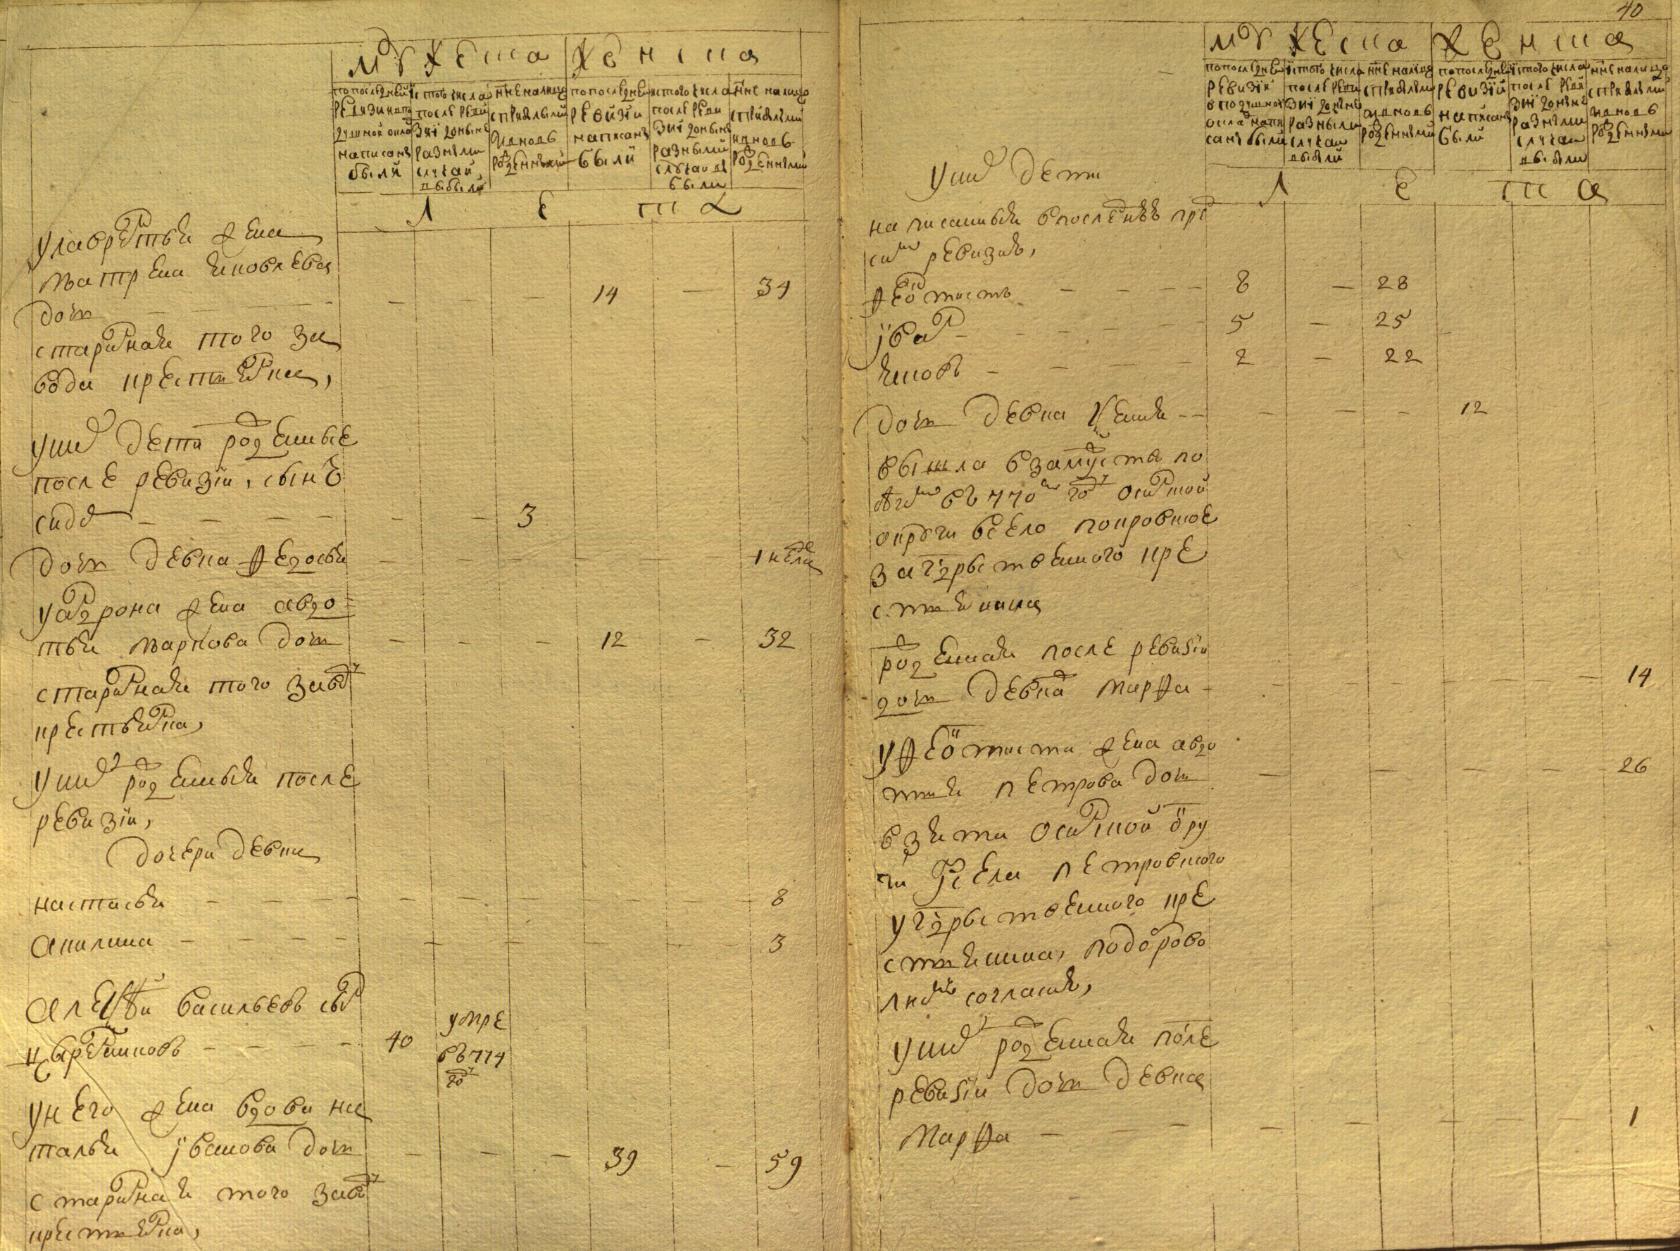 мужеска
женска
по последней ревизии в подушной оклад написаны были
из того числа после ревизии до ныне разными случаи выбыли
ныне на лицо с прибылыми и вновь рожденными
по последней ревизии написаны были
из того числа после ревизии до ныне разными случаи выбыли
ныне на лицо с прибылыми и вновь рожденными
лета
у лаврентья жена
матрена яковлева
дочь — 14 — 34
старинная того за
вода крестьянка,
у них дети рожденные
после ревизии, сынъ
3
дочь девка федосья 1 недели
жена авдо
тья маркова дочь — 12 — 32
старинная того завод
крестьянка,
у них рожденныя после
ревизии,
дочери девки
настасья — 8
акилина — 3
алексей васильевъ сын
40 умре въ 774 год
у него жена вдова на
талья иванова дочь — 39 — 59
старинная того завод
крестьянка,
40
мужеска
женска
по последней ревизии в подушной оклад написаны были
из того числа после ревизии до ныне разными случаи выбыли
ныне на лицо с прибылыми и вновь рожденными
по последней ревизии написаны были
из того числа после ревизии до ныне разными случаи выбыли
ныне на лицо с прибылыми и вновь рожденными
лета
у них дети
написанныя в последнюю пред
сим ревизию,
феоктистъ — 8 — 28
иван — 5 — 25
яковъ — 2 — 22
дочь девка — 12
вышла в замужство по
въ 770м год осинской
округи в село покровское
за государственного кре
стьянина
рожденная после ревизии
дочь девка марфа — 14
у феоктиста жена авдо
тья петрова дочь — 26
взята осинской окру
ги ис села петровского
у государственного кре
стьянина, по добровол
ному согласию,
у них рожденная после
ревизии дочь девка
марфа — 1